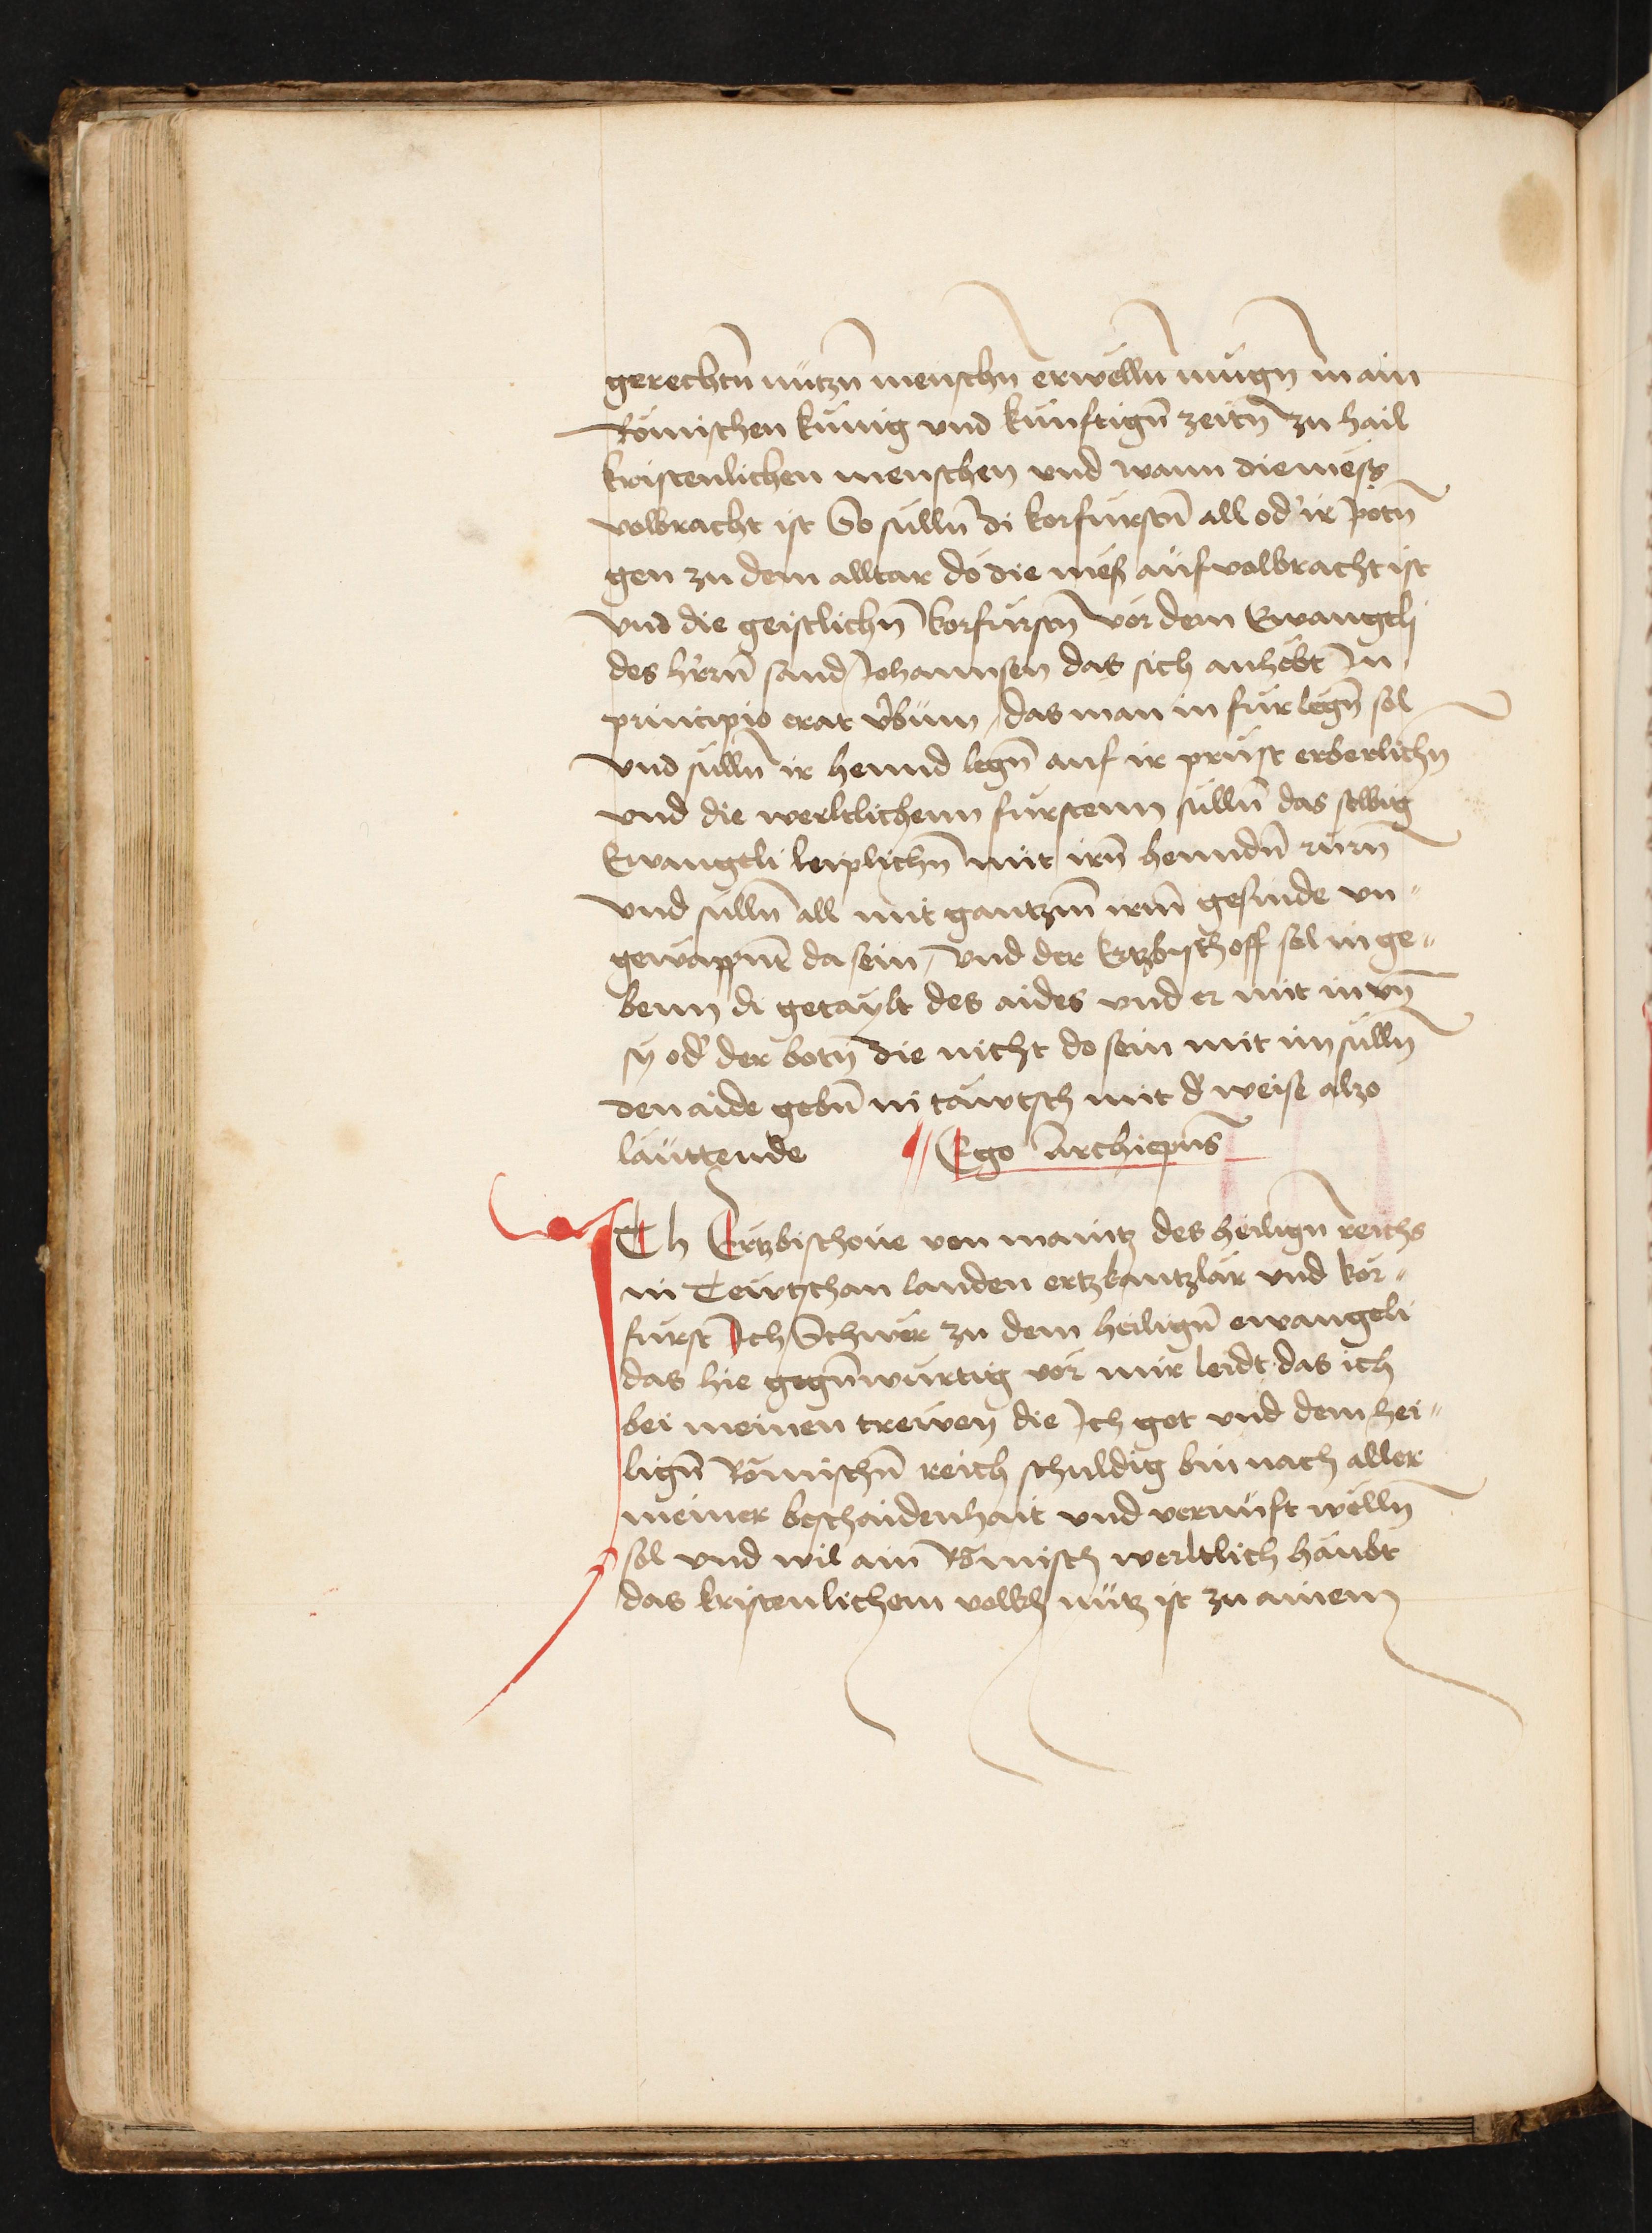 gerechtn̄ nützn̄ menschn̄ erwelln̄ mügn̄ in ain
Römischen künig vnd künftign̄ zeitn̄ zu hail
kristenlichen menschen vnd wann die mess
volbracht ist So sülln̄ di korfürstn̄ all od' ir potn̄
gen zu dem alltar do die mess auf volbracht ist
vnd die geistlichn̄ korfürstn̄ vor dem Ewangeli
des h'rn̄ sand Johannsen das sich anhebt In
principio erat v'bum, das man in für legn̄ sol
vnd sülln̄ ir hennd legn̄ auf ir prust erberlichn̄
vnd die werltlichenn fürstenn sülln̄ das selbig
Ewangeli leiplichn̄ mit irn̄ henndn̄ rürn̄
vnd sülln̄ all mit gantzm̄ irm̄ gesinde vn„
gewappnt da sein, vnd der Ertzbischoff sol in ge„
benn di getaylt des aides vnd er mit in vn̄
sy od' der botn̄ die nicht do sein mit im sülln̄
den aide gebn̄ in täwtsch mit d' weise also
lauttende Ego Archiepūs
ICh Ertzbischoue von maintz des heilign̄ reichs
in Tewtschan landen ertzkantzlär vnd kor„
fürst Ich Schwer zu dem heilign̄ ewangeli
das hie gegn̄würtig vor mir leidt das ich
bei meinen trewen die Ich got vnd dem hei„
lign̄ Römischn̄ reich schuldig bin nach aller
meiner beschaidenhait vnd vernüft welln̄
sol vnd wil ain Römisch werltlich haubt
das kristenlichem volkh nütz ist zu ainem